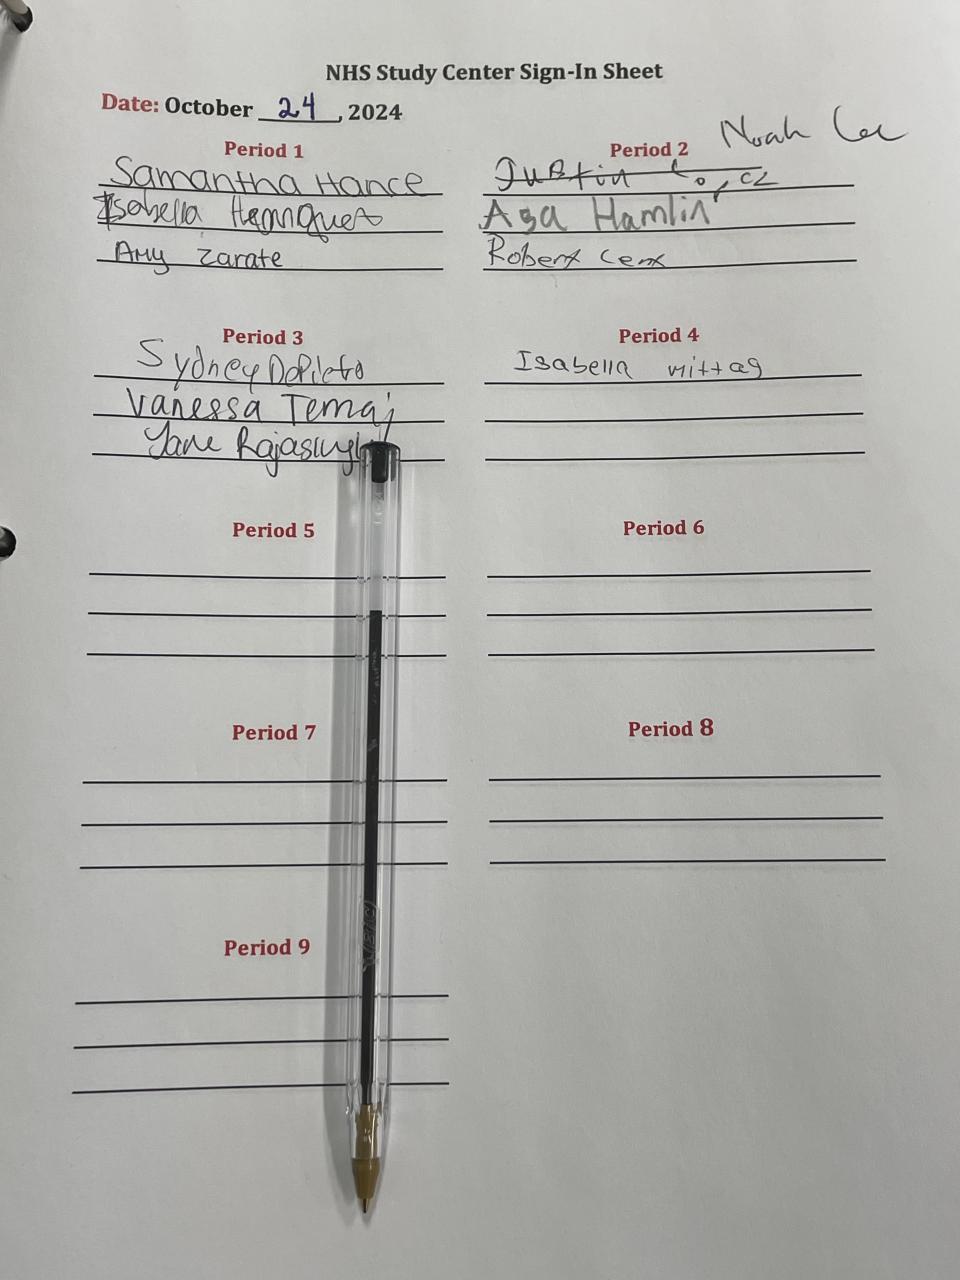 NHS Study Center Sign-In Sheet
Date: October 24, 2024
Period 1
Samantha Hance
Isabella
Amy Zarate
Period 2
Noah Lee
Justin
Asa Hamlin
Robert
Period 3
Sydney DePietro
Vanessa Temaj
Period 4
Isabella Mittag
Period 5
Period 6
Period 7
Period 8
Period 9